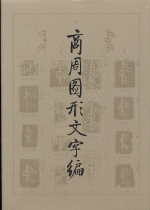 商周图形文字编